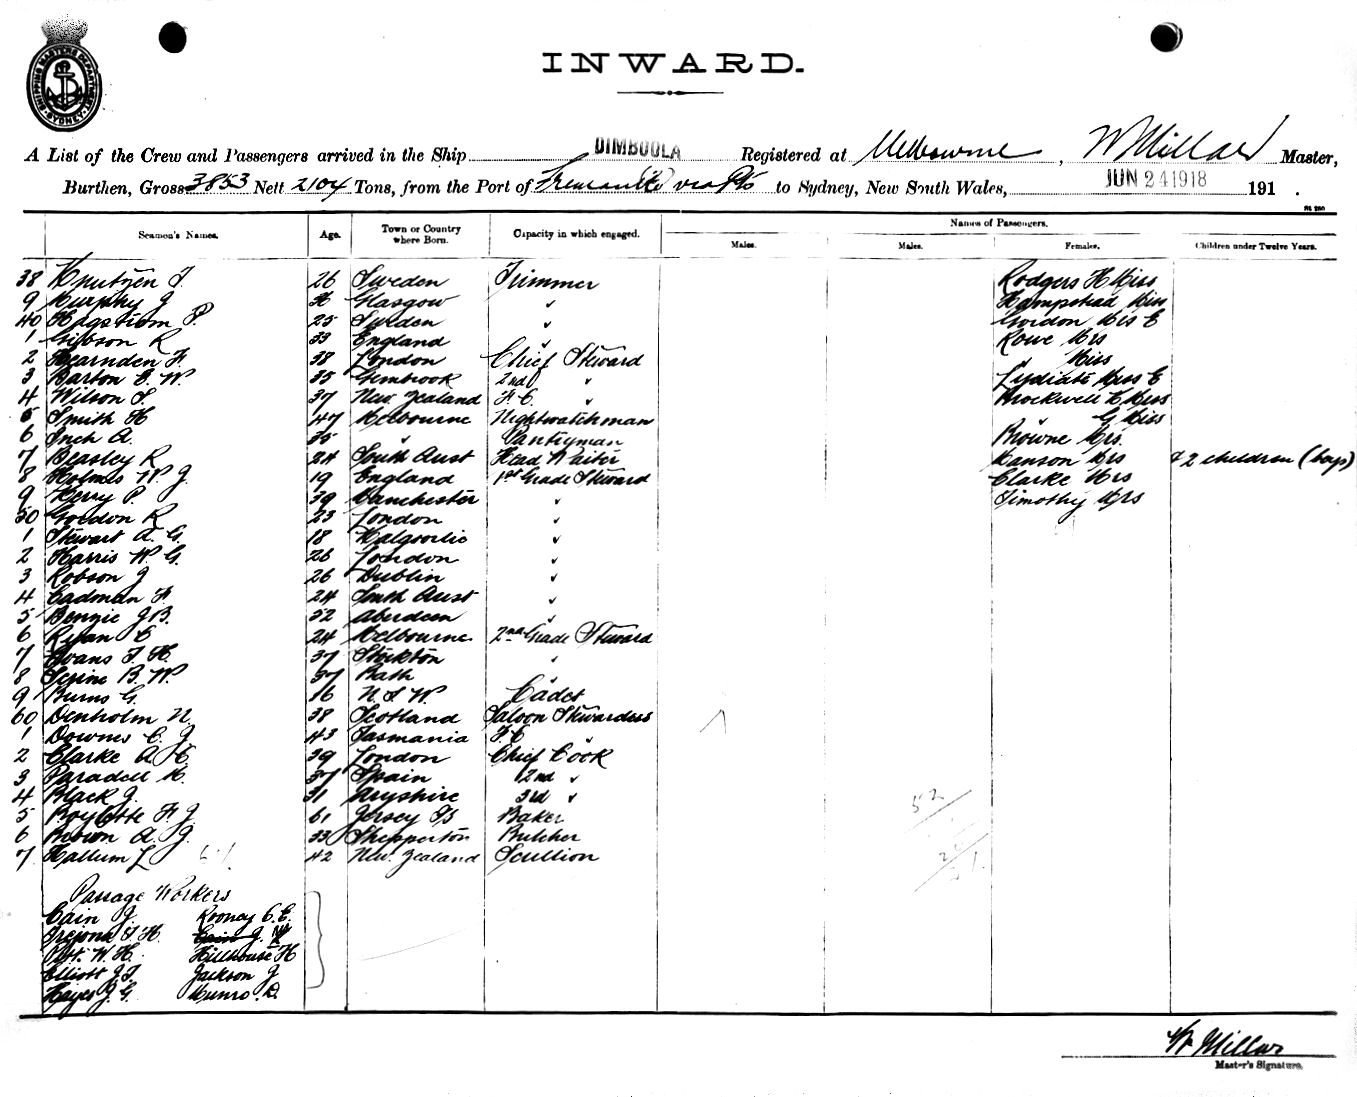 SHIPPING MASTERS DEPARTMENT
SYDNEY
INWARD.
A List of the Crew and Passengers arrived in the Ship DIMBOOLA Registered at Melbourne, W Millar Master,
Burthen, Gross 3853 Nett 2104 Tons, from the Port of Fremantle via Pts to Sydney, New South Wales, JUN 24 1918 191 .
Names of Passengers.
Seamen's Names. Age. Town or Country where Born. Capacity in which engaged. Males. Males. Females. Children under Twelve Years.
38 Knutzen J. 26 Sweden Trimmer Rodgers H Miss
9 Murphy J 36 Glasgow " Hampstead Miss
40 Hagstrom P. 25 Sweden " Gordon Mrs E
1 Gibson R 33 England " Rowe Mrs
2 Hearnden F. 38 London Chief Steward " Miss
3 Barton E. W. 35 Gembrook 2nd " Lydiate Miss E
4 Wilson S. 37 New Zealand F. C. " Brockwell E Miss
5 Smith H 47 Melbourne Nightwatchman " G Miss
6 Inch A. 35 " Pantryman Browne Mrs.
7 Beasley R 24 South Aust Head Waiter Manson Mrs & 2 children (boys)
8 Holmes W. J. 19 England 1st Grade Steward Clarke Mrs
9 Merry P. 39 Manchester " Timothy Mrs
50 Gordon R 23 London "
1 Stewart A. G. 18 Kalgoorlie "
2 Harris W. G. 26 London "
3 Robson J 26 Dublin "
4 Cadman F. 24 South Aust "
5 Benzie J. B. 52 Aberdeen "
6 Ryan E 24 Melbourne 2nd Grade Steward
7 Evans T. H. 37 Stockton "
8 Serine B. W. 37 Bath "
9 Burns G. 16 N. S. W. Cadet
60 Denholm N. 38 Scotland Saloon Stewardess
1 Downes C. J 43 Tasmania F. C "
2 Clarke A. E. 39 London Chief Cook
3 Paradell M. 37 Spain 2nd "
4 Black J. 31 Aryshire 3rd "
5 Roylette F. J. 61 Jersey Is Baker
6 Brown A. J. 33 Shepperton Butcher
7 Hallum L 42 New Zealand Scullion
52
Passage Workers
Cain J. Rooney C. E.
Trejona T. H. Cain J.
Ott. W. H. Hillhouse H
Elliott J. T. Jackson J
Hayes J. G. Munro. D.
W. Millar
Master's Signature.